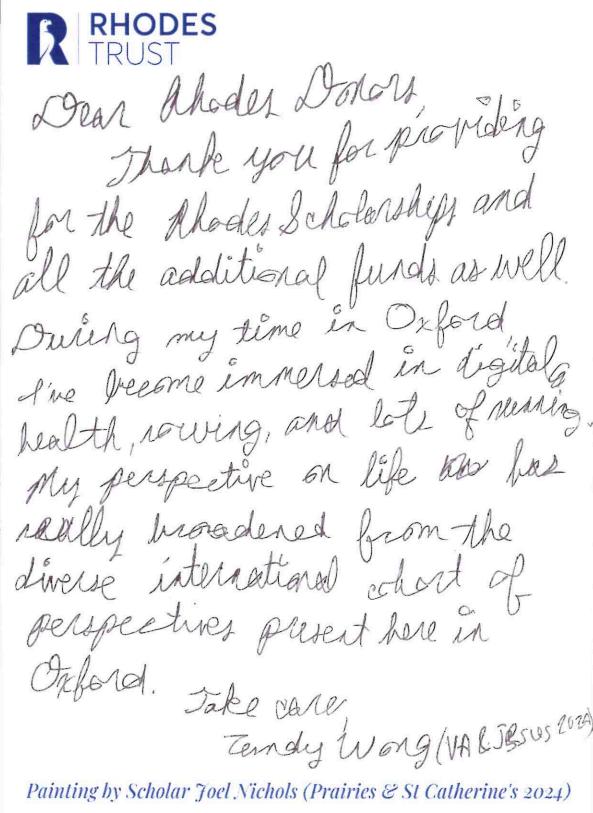 RHODES
TRUST
Dear Rhodes Donors,
Thank you for providing
for the Rhodes Scholarships and
all the additional funds as well.
During my time in Oxford,
I've become immersed in digital
health, rowing, and lots of running.
My perspective on life has
really broadened from the
diverse international cohort of
perspectives present here in
Oxford.
Take care,
Wong (VA & JESUS 2024)
Painting by Scholar Joel Nichols (Prairies & St Catherine's 2024)